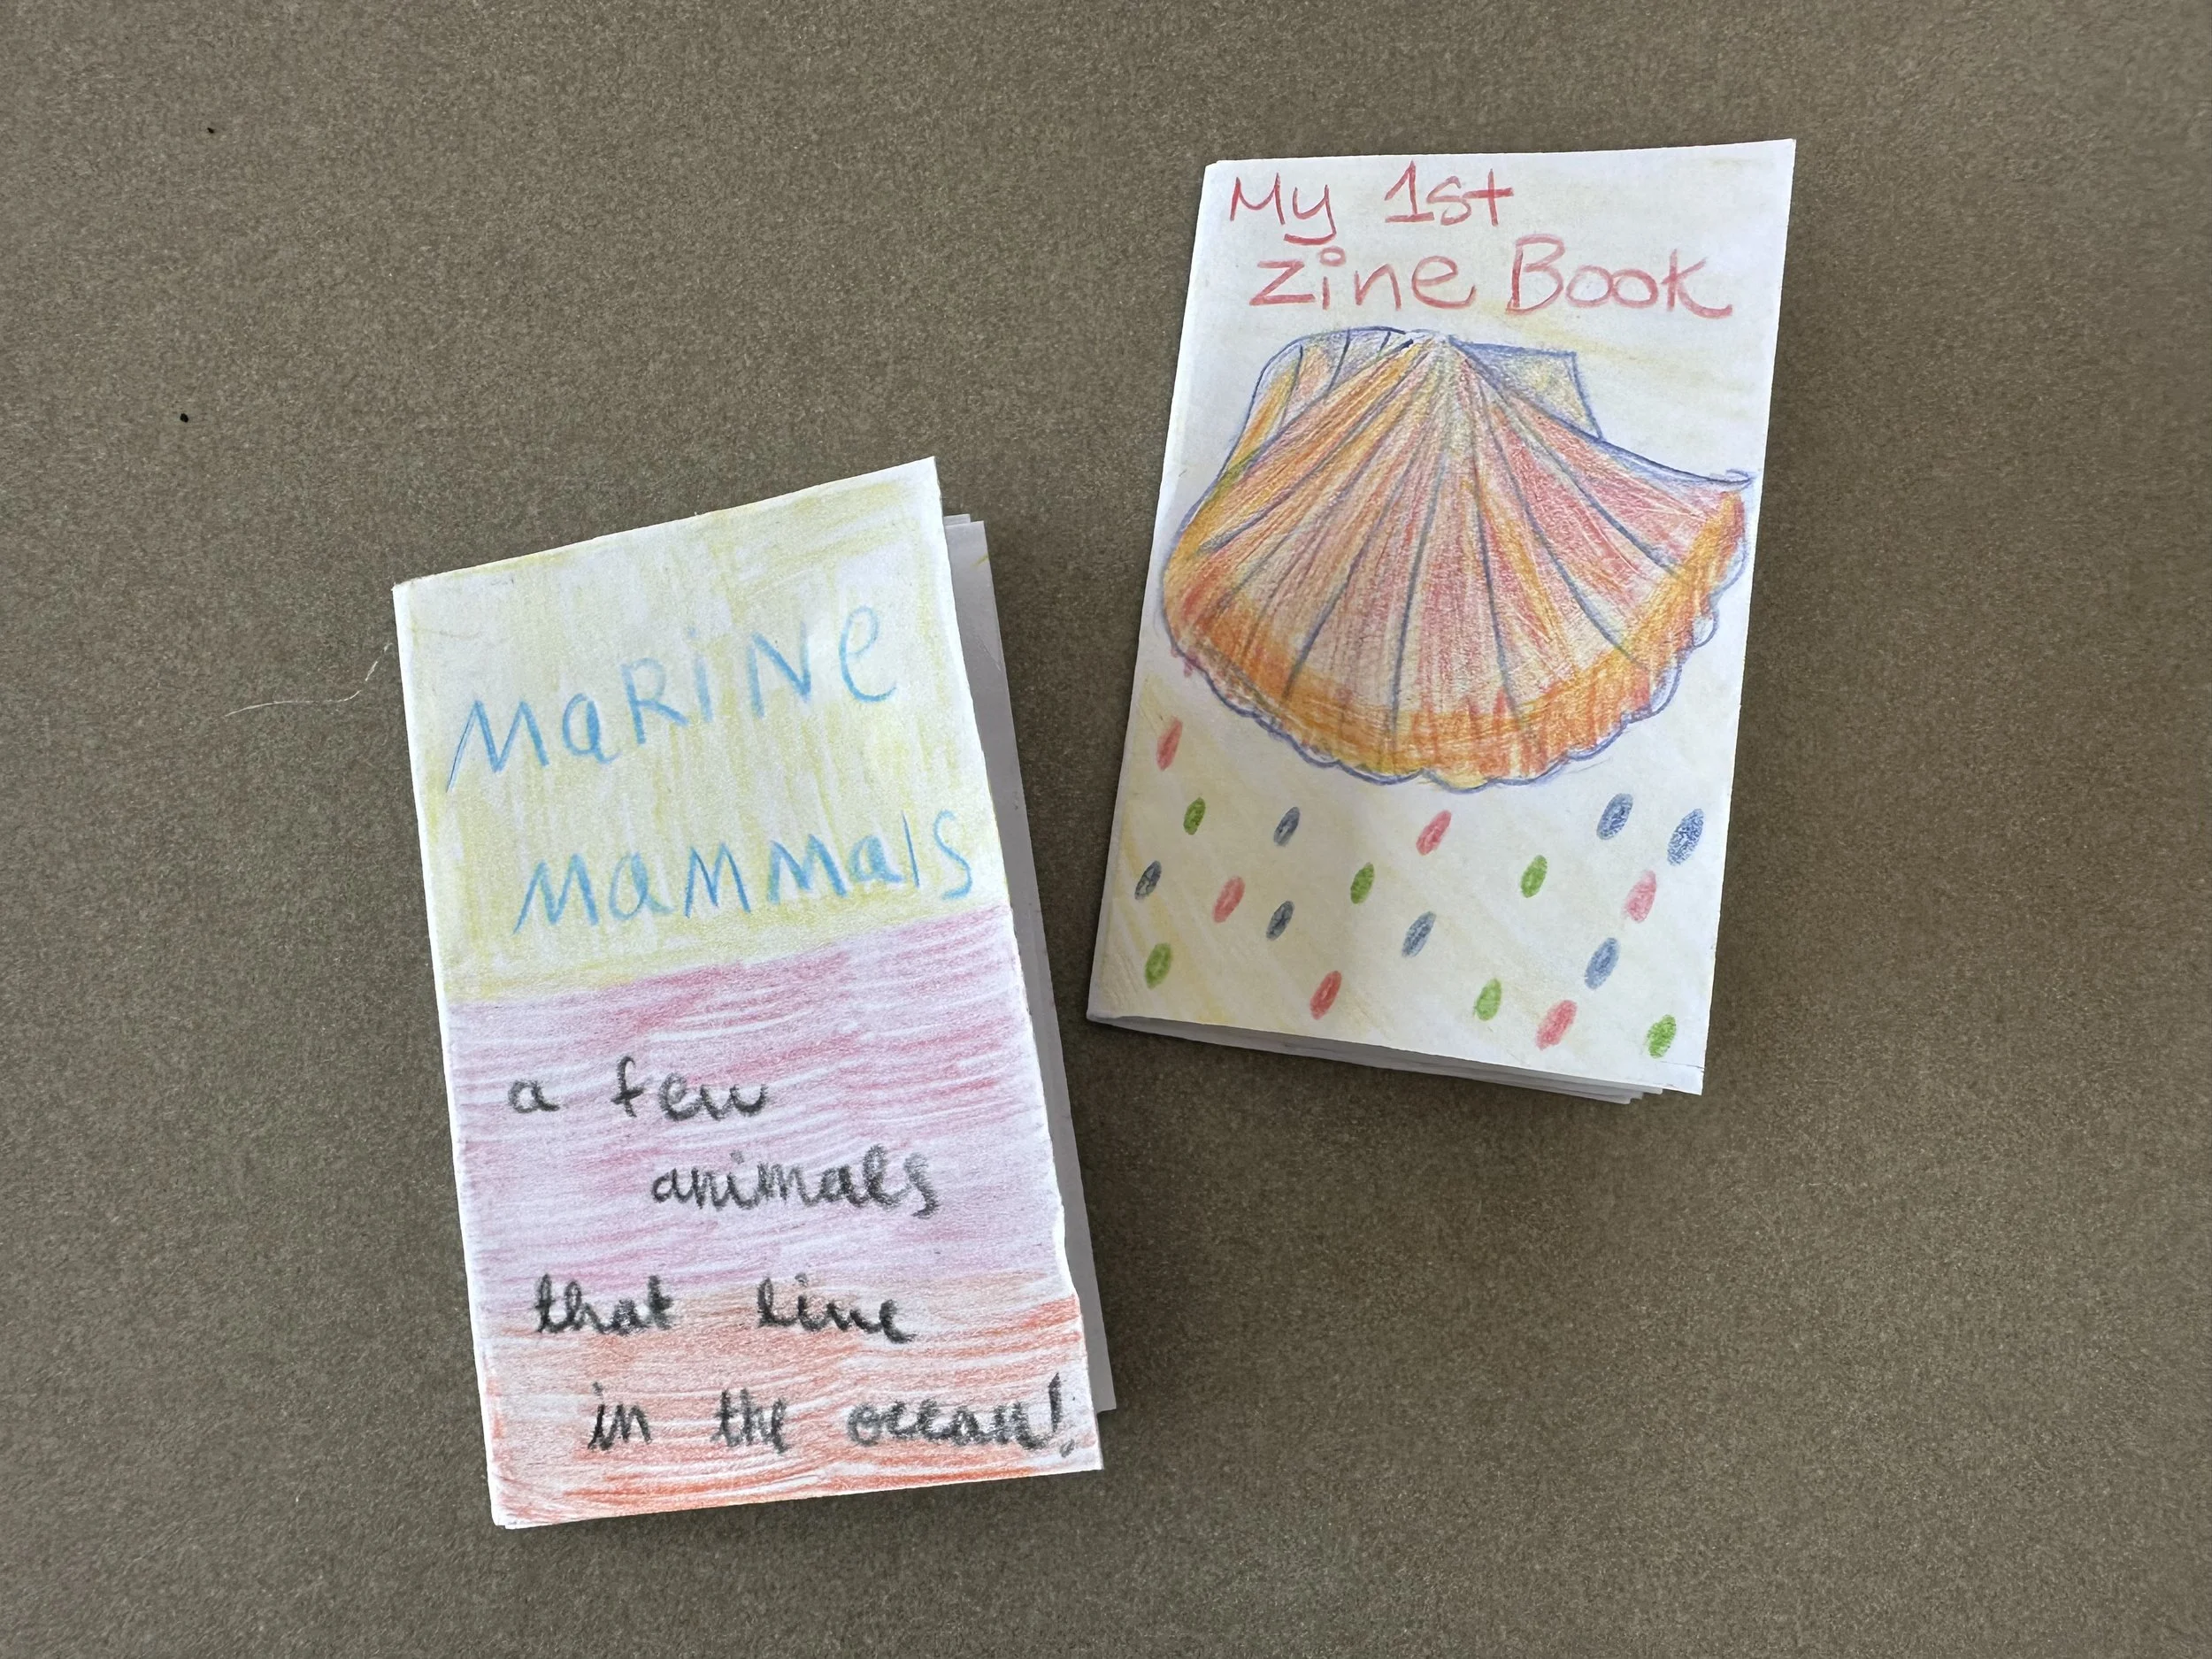 MaRiNe
MaMMals
a few
animals
that live
in the ocean!
My 1st
Zine Book